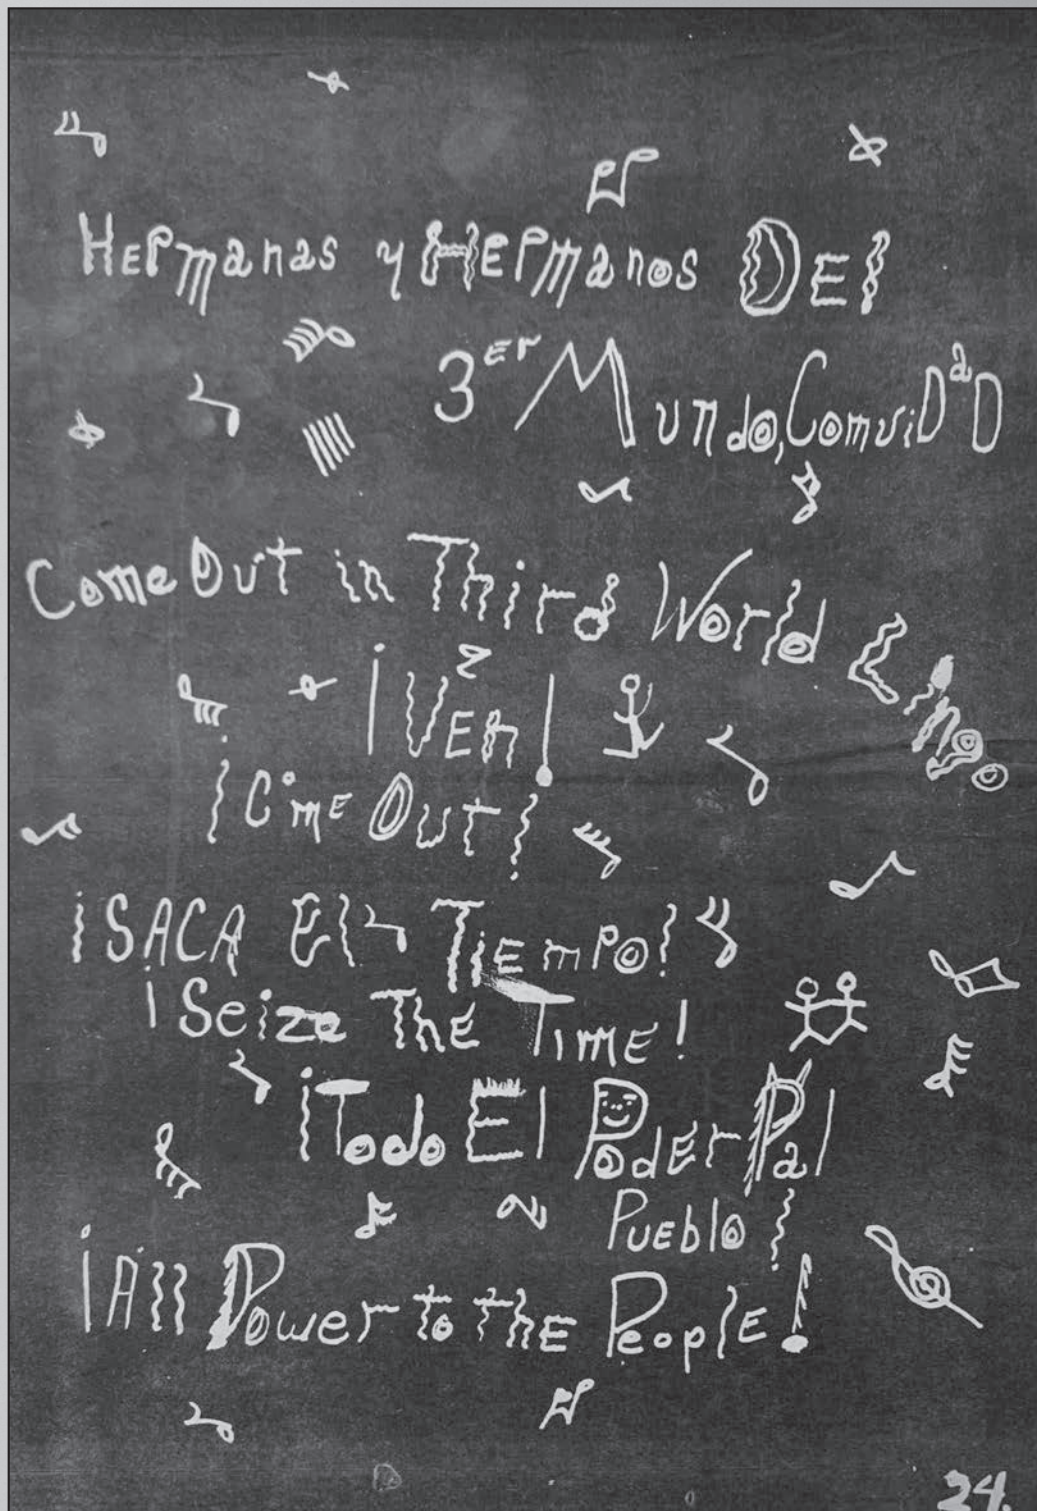 HErmanas y HErmanos DEl
3Er Mundo, ComuiDaD
Come Out in Third World Lingo
¡VEn!
¡ComE Out!
¡SACA El TiEmPo!
¡Seize ThE TimE!
¡Todo El PodEr Pal
PuEblo!
¡All Power to thE PeoplE!
24